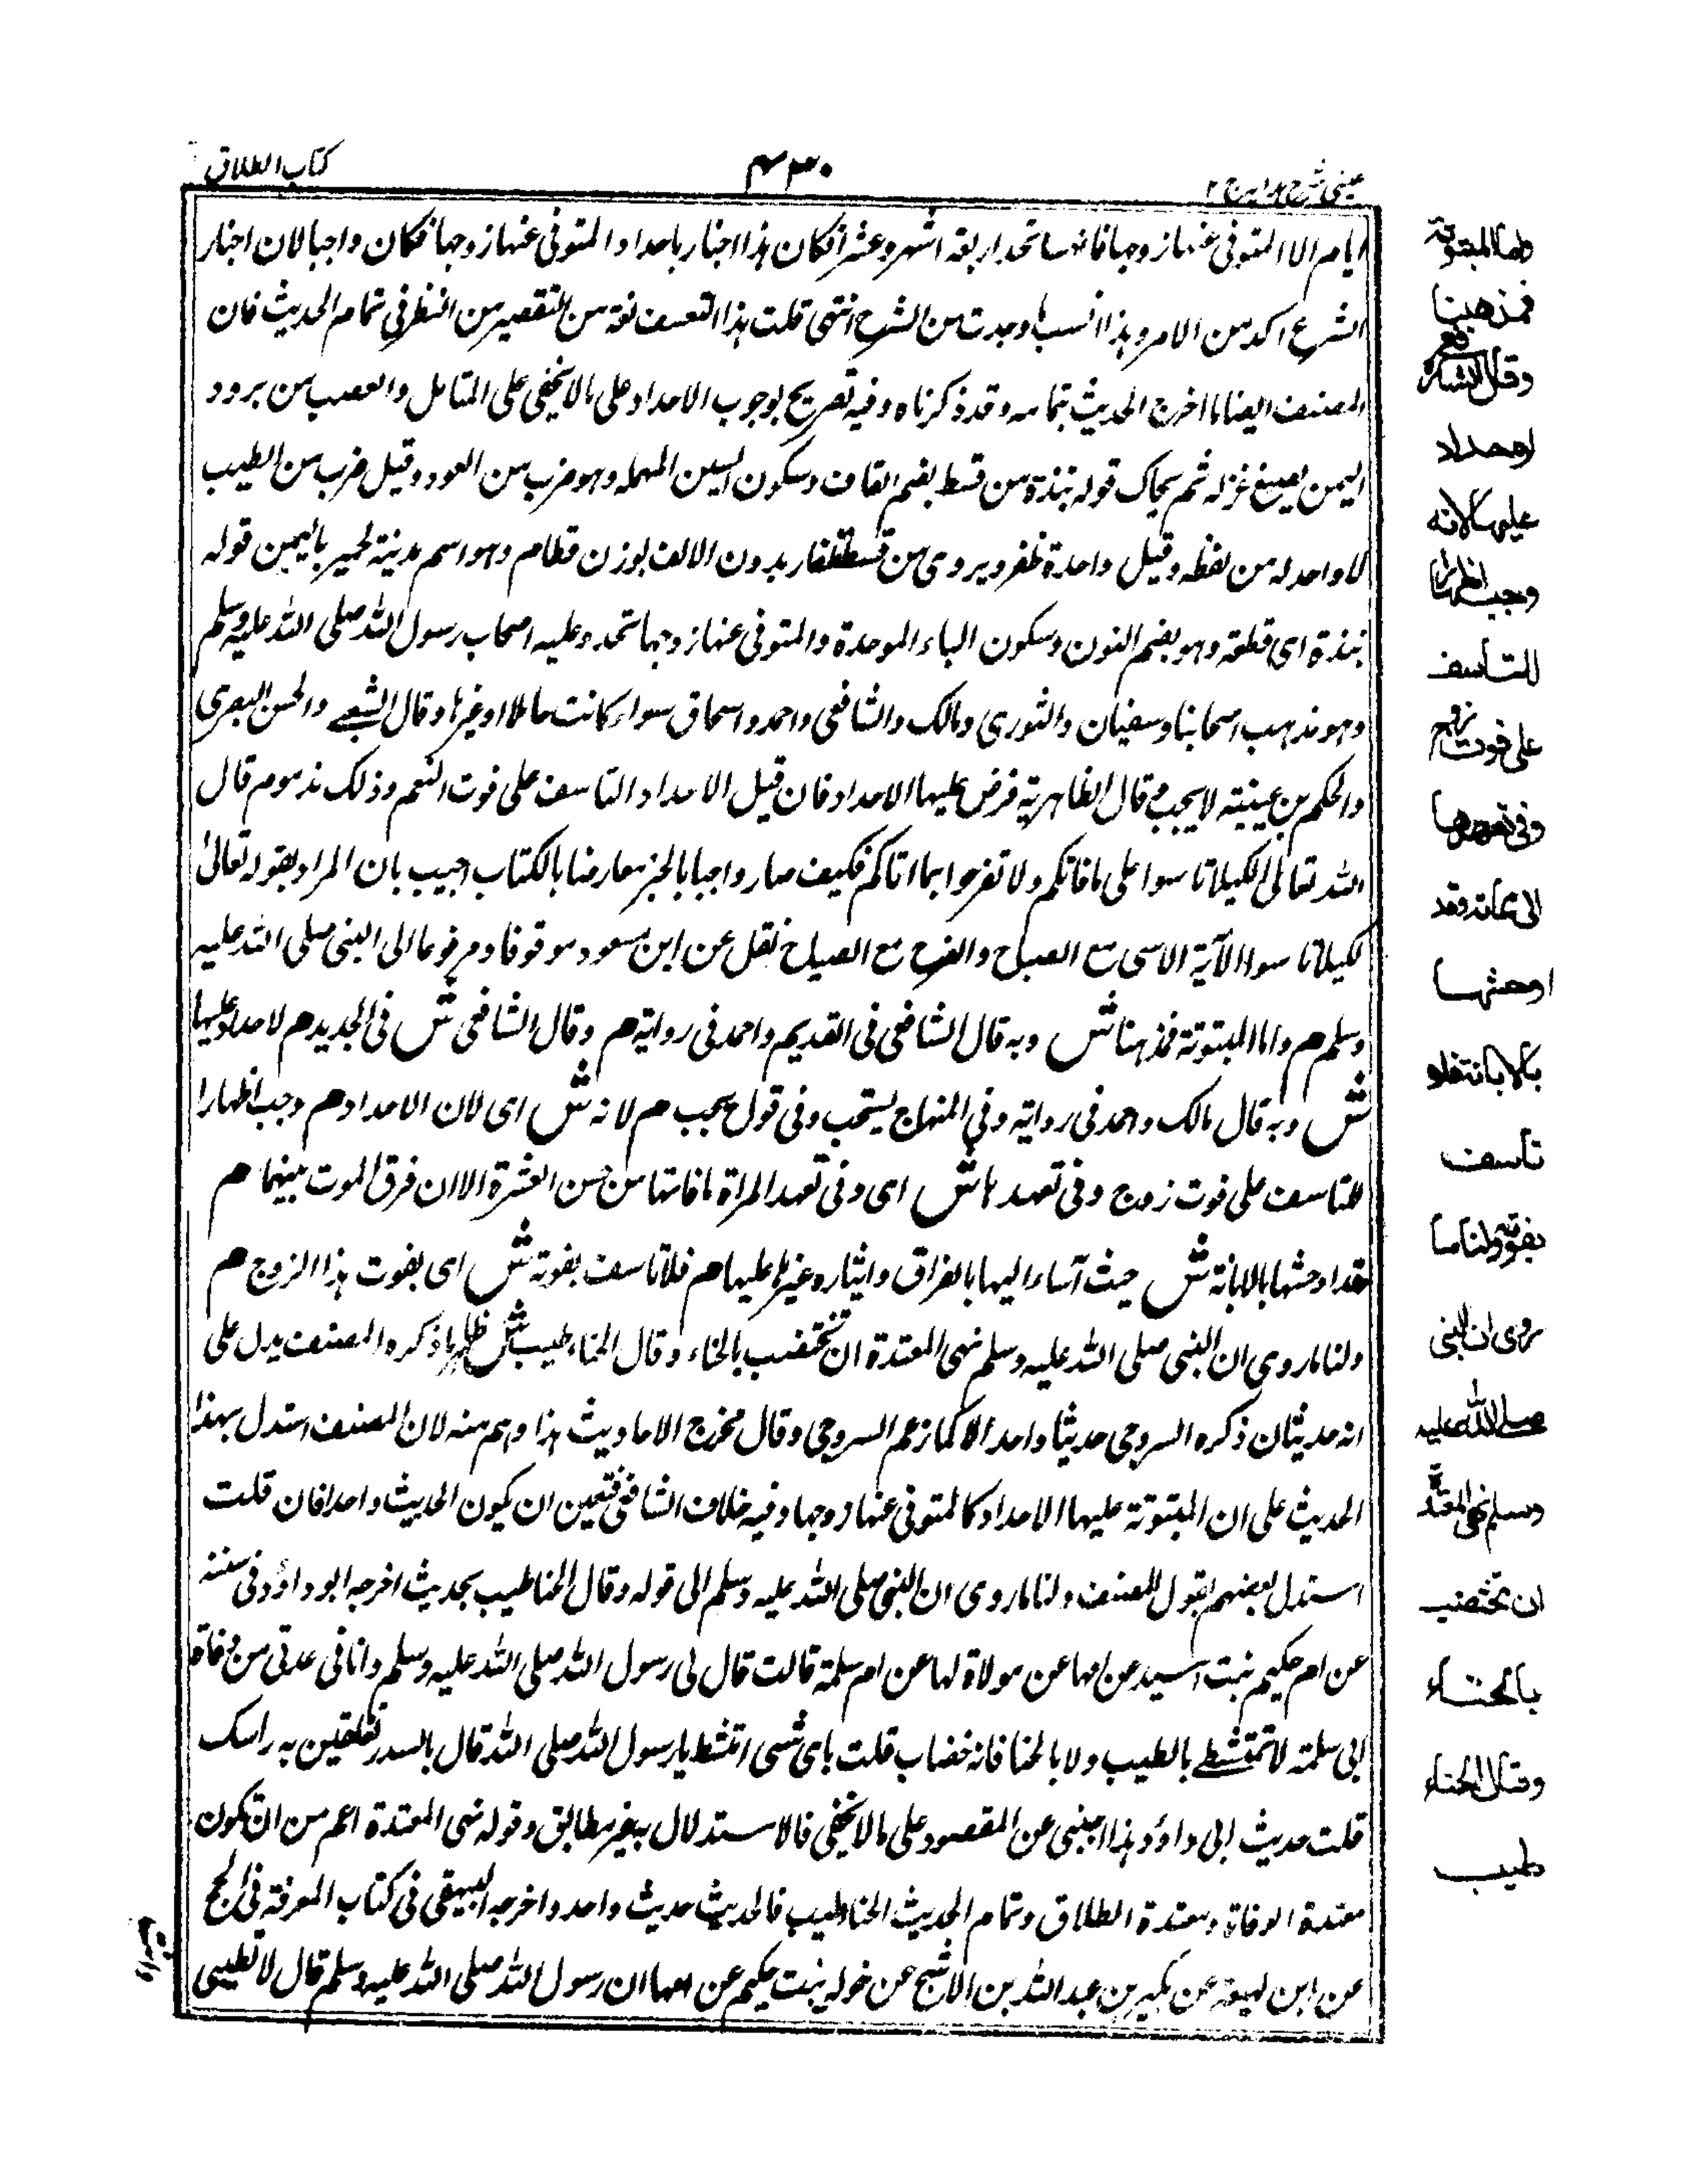 عینی شرح ہدایہ ج ۲
۴۳۰
کتاب الطلاق
ایام الا المتوفی عنها زوجها فانها تحد اربعة اشهر وعشرا فکان هذا اخبار باحداد المتوفی عنها زوجها فکان واجبا لان اخبار
الشرع اکد من الامر وهذا انسب ما وجدت من الشرح انتهی قلت هذا التعسف نوۃ من التقصیر من النظر فی تمام الحدیث فان
المصنف ایضا ما اخرج الحدیث بتمامه وقد ذکرناه وفیه تصریح بوجوب الاحداد علی مالا یخفی علی المتامل والعصب من برود
الیمن یصبغ غزله ثم یحاک قوله نبذة من قسط بضم القاف وسکون السین المهملة وهو ضرب من العود وقیل ضرب من الطیب
لا واحد له من لفظه وقیل واحدة ظفر ویروی من قسط ظفار بدون الالف بوزن قطام وهو اسم مدینة لحمیر بالیمن قوله
نبذة ای قطعة وهو بضم النون وسکون الباء الموحدة والمتوفی عنها زوجها تحد وعلیه اصحاب رسول الله صلی الله علیه وسلم
وهو مذهب اصحابنا وسفیان والثوری ومالک والشافعی واحمد واسحاق سواء کانت حاملا او غیرها وقال الشعبی والحسن البصری
والحکم بن عیینة لا یجب م قال الظاهریة فرض علیها الاحداد فان قیل الاحداد التاسف علی فوت النعم وذلک مذموم قال
الله تعالی لکیلا تاسوا علی ما فاتکم ولا تفرحوا بما اتاکم فکیف صار واجبا بالخبر معارضا بالکتاب اجیب بان المراد بقوله تعالی
لکیلا تا سوا الآیة الاسی مع الصیاح والفرح مع الصیاح نقل عن ابن مسعود موقوفا ومرفوعا الی النبی صلی الله علیه
وسلم م واما المبتوتة فمذهبنا ش وبه قال الشافعی فی القدیم واحمد فی روایة م وقال الشافعی ش فی الجدید م لا حداد علیها
ش وبه قال مالک واحمد فی روایة وفی المنهاج یستحب وفی قول یجب م لانه ش ای لان الاحداد م وجب اظهارا
للتاسف علی فوت زوج وفی تعهدها ش ای وفی تعهد المراة ما فاتها من حسن العشرة الا ان فرق الموت بینهما م
فقد اوحشها بالابانة ش حیث آساء الیها بالفراق وایثاره غیرها علیها م فلا تاسف بفوته ش ای بفوت هذا الزوج م
ولنا ما روی ان النبی صلی الله علیه وسلم نهی المعتدة ان تختضب بالحناء وقال الحناء طیب ش ظاهر ما ذکره المصنف یدل علی
انه حدیثان ذکره السروجی حدیثا واحدا الا کما زعم السروجی وقال مخرج الاحادیث هذا وهم منه لان المصنف استدل بهذا
الحدیث علی ان المبتوتة علیها الاحداد کالمتوفی عنها زوجها وفیه خلاف الشافعی فتعین ان یکون الحدیث واحدا فان قلت
استدل بعضهم لقول المصنف ولنا ما روی ان النبی صلی الله علیه وسلم الی قوله وقال الحنا طیب بحدیث اخرجه ابو داؤد فی سننه
عن ام حکیم بنت اسید عن امها عن مولاة لها عن ام سلمة قالت قال لی رسول الله صلی الله علیه وسلم وانا فی عدتی من وفاة
ابی سلمة لا تمتشطی بالطیب ولا بالحنا فانه خضاب قلت بای شئ امتشط یا رسول الله صلی الله قال بالسدر تغلفین به راسک
قلت حدیث ابی داوٗد وهذا اجنبی عن المقصود علی مالا یخفی فالاستدلال به غیر مطابق وقوله نهی المعتدة اعم من ان تکون
معتدة الوفاة ومعتدة الطلاق وتمام الحدیث الحنا طیب فالحدیث حدیث واحد واخرجه البیهقی فی کتاب المعرفة فی الحج
عن ابن لهیعة عن بکیر بن عبدالله بن الاشج عن خولة بنت حکیم عن امها ان رسول الله صلی الله علیه وسلم قال لا تطیبی
المبتوتة
فمذهبنا
وقال الشافعی
لا حداد
علیها لانه
وجب اظهارا
للتاسف
علی فوت زوج
وفی تعهدها
الی مماته وقد
اوحشها
بالابانة فلا
تاسف
بفوته ولنا ما
روی ان النبی
صلی الله علیه
وسلم نهی المعتدة
ان تختضب
بالحناء
وقال الحناء
طیب